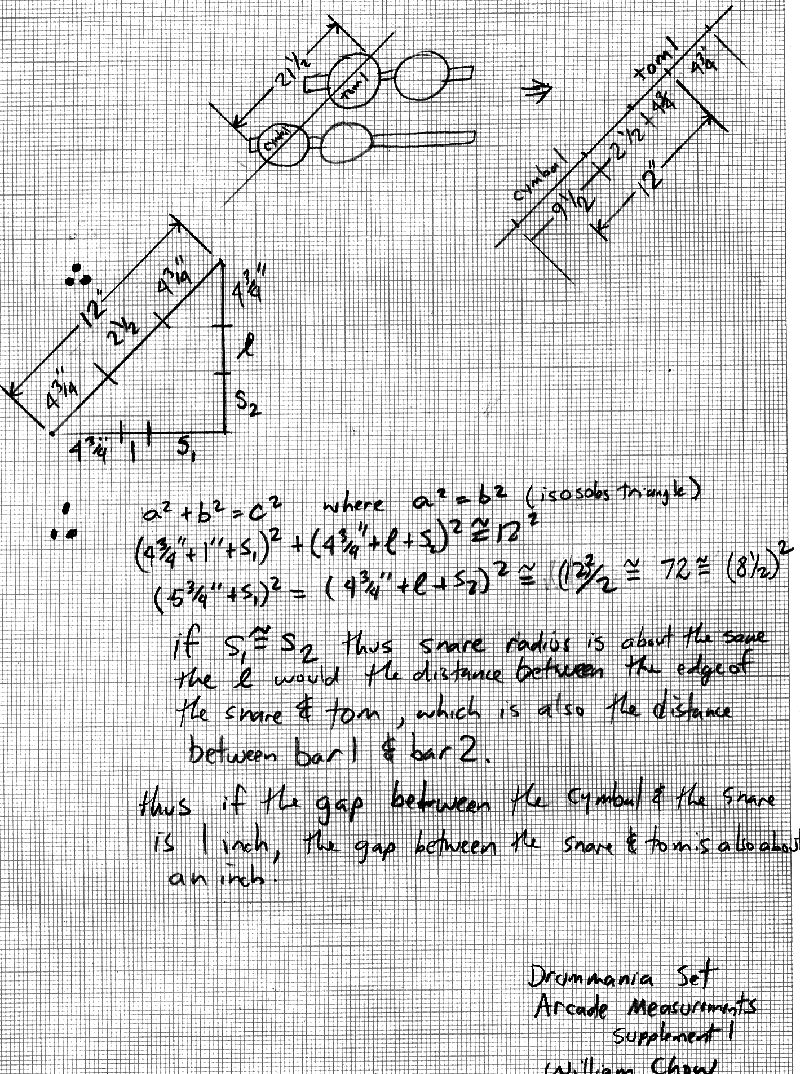 21 1/2
tom 1
cymbal
⇒
tom 1
4 3/4
cymbal
9 1/2
2 1/2 + 4 3/4
12"
∴
12"
4 3/4"
2 1/2
4 3/4"
4 3/4"
l
S₂
4 3/4" 1 S₁
∴
a² + b² = c² where a² = b² (isosobs triangle)
(4 3/4" + 1" + S₁)² + (4 3/4" + l + S₂)² ≅ 12²
(5 3/4" + S₁)² = (4 3/4" + l + S₂)² ≅ (12²)/2 ≅ 72 ≅ (8 1/2)²
if S₁ ≅ S₂ thus snare radius is about the same
the l would the distance between the edge of
the snare & tom, which is also the distance
between bar 1 & bar 2.
thus if the gap between the cymbal & the snare
is 1 inch, the gap between the snare & tom is also about
an inch.
Drummania Set
Arcade Measurments
Supplement 1
William Chow